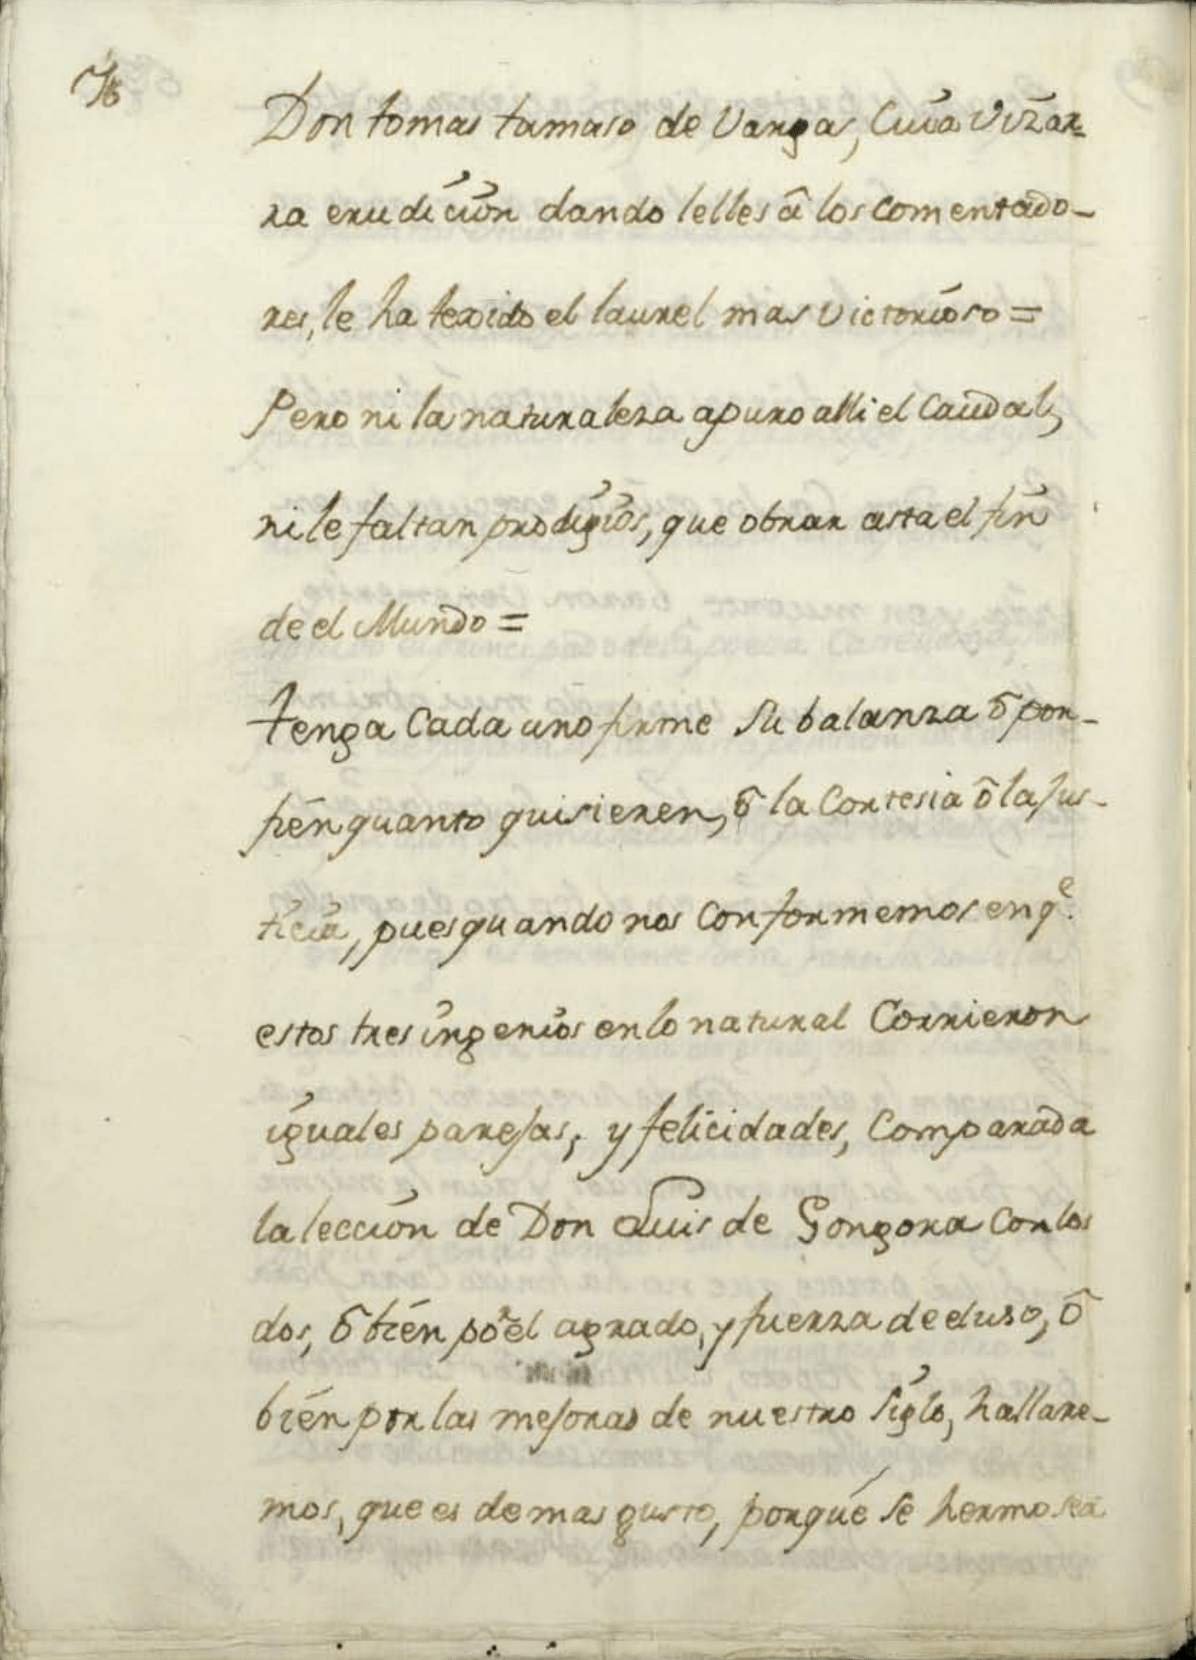 76
Don tomas tamaio de Vargas, Cuia Vizar-
ra erudición dando lelles â los comentado-
res, le ha texido el laurel mas victorioso =
Pero ni la naturaleza apuro alli el Caudal,
ni le faltan prodigios, que obrar asta el fin
de el Mundo =
tenga Cada uno firme su balanza ô por-
fién quanto quisieren, ô la Cortesia ô la jus-
ticia, pues quando nos Conformemos en q.e
estos tres ingenios en lo natural Corrieron
iguales parejas, y felicidades, Comparada
la lección de Don Luis de Gongora Con los
dos, ô bién por el agrado, y fuerza de el uso, ô
bién por las mejoras de nuestro siglo, hallare-
mos, que es de mas gusto, porqué se hermosea